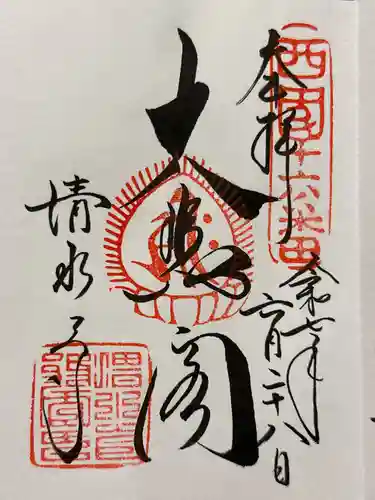 西国十六番
奉拝
令和七年
六月二十八日
大悲閣
清水寺